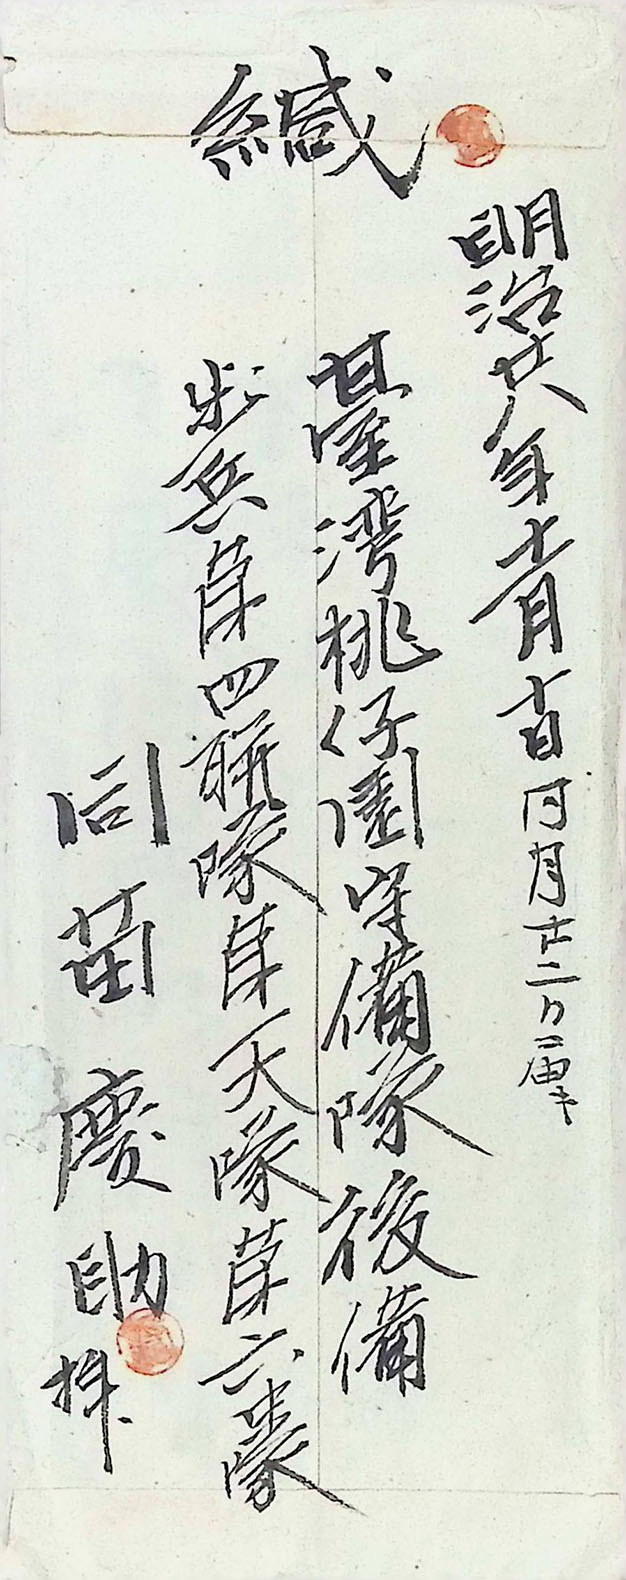 緘
明治廿八年十一月十一日 同月廿二日ニ届キ
臺湾桃仔園守備隊後備
歩兵第四聯隊第一大隊第六中隊
同苗慶助拝